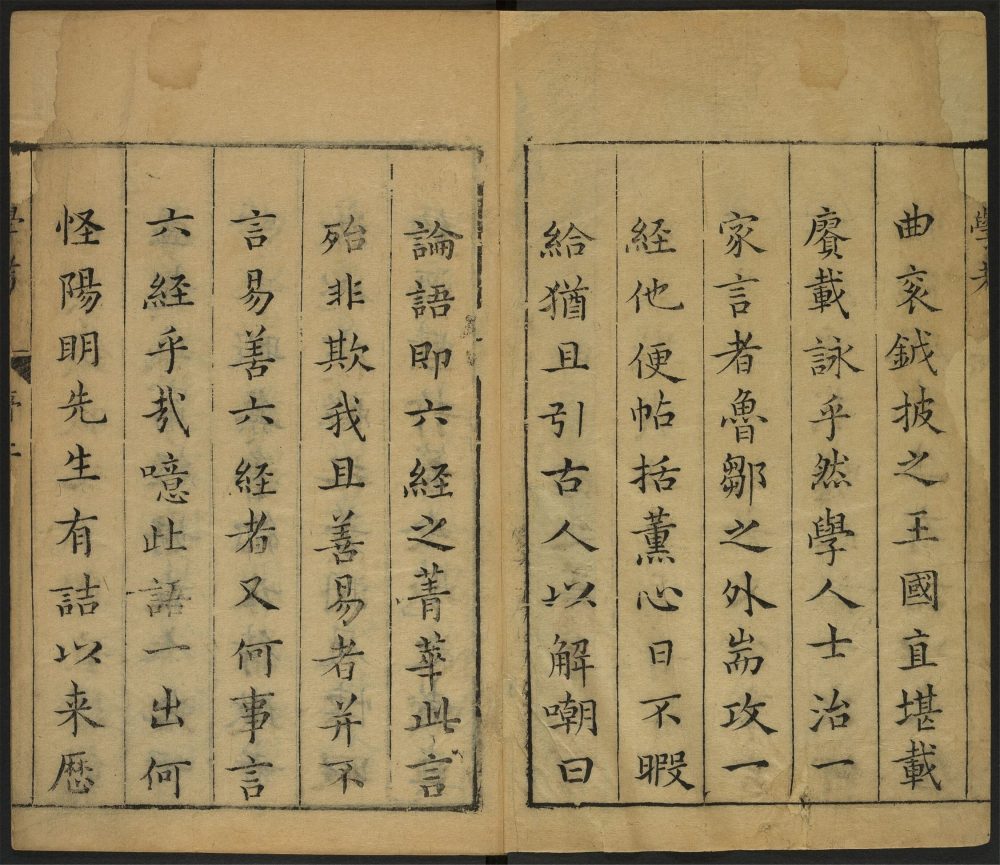 曲衮鉞披之王國直堪載
賡載詠乎然學人士治一
家言者魯鄒之外耑攻一
経他便帖括薰心日不暇
給猶且引古人以解嘲曰
論語即六経之菁華此言
殆非欺我且善易者并不
言易善六経者又何事言
六経乎㢤噫此語一出何
怪陽明先生有詰以来歷